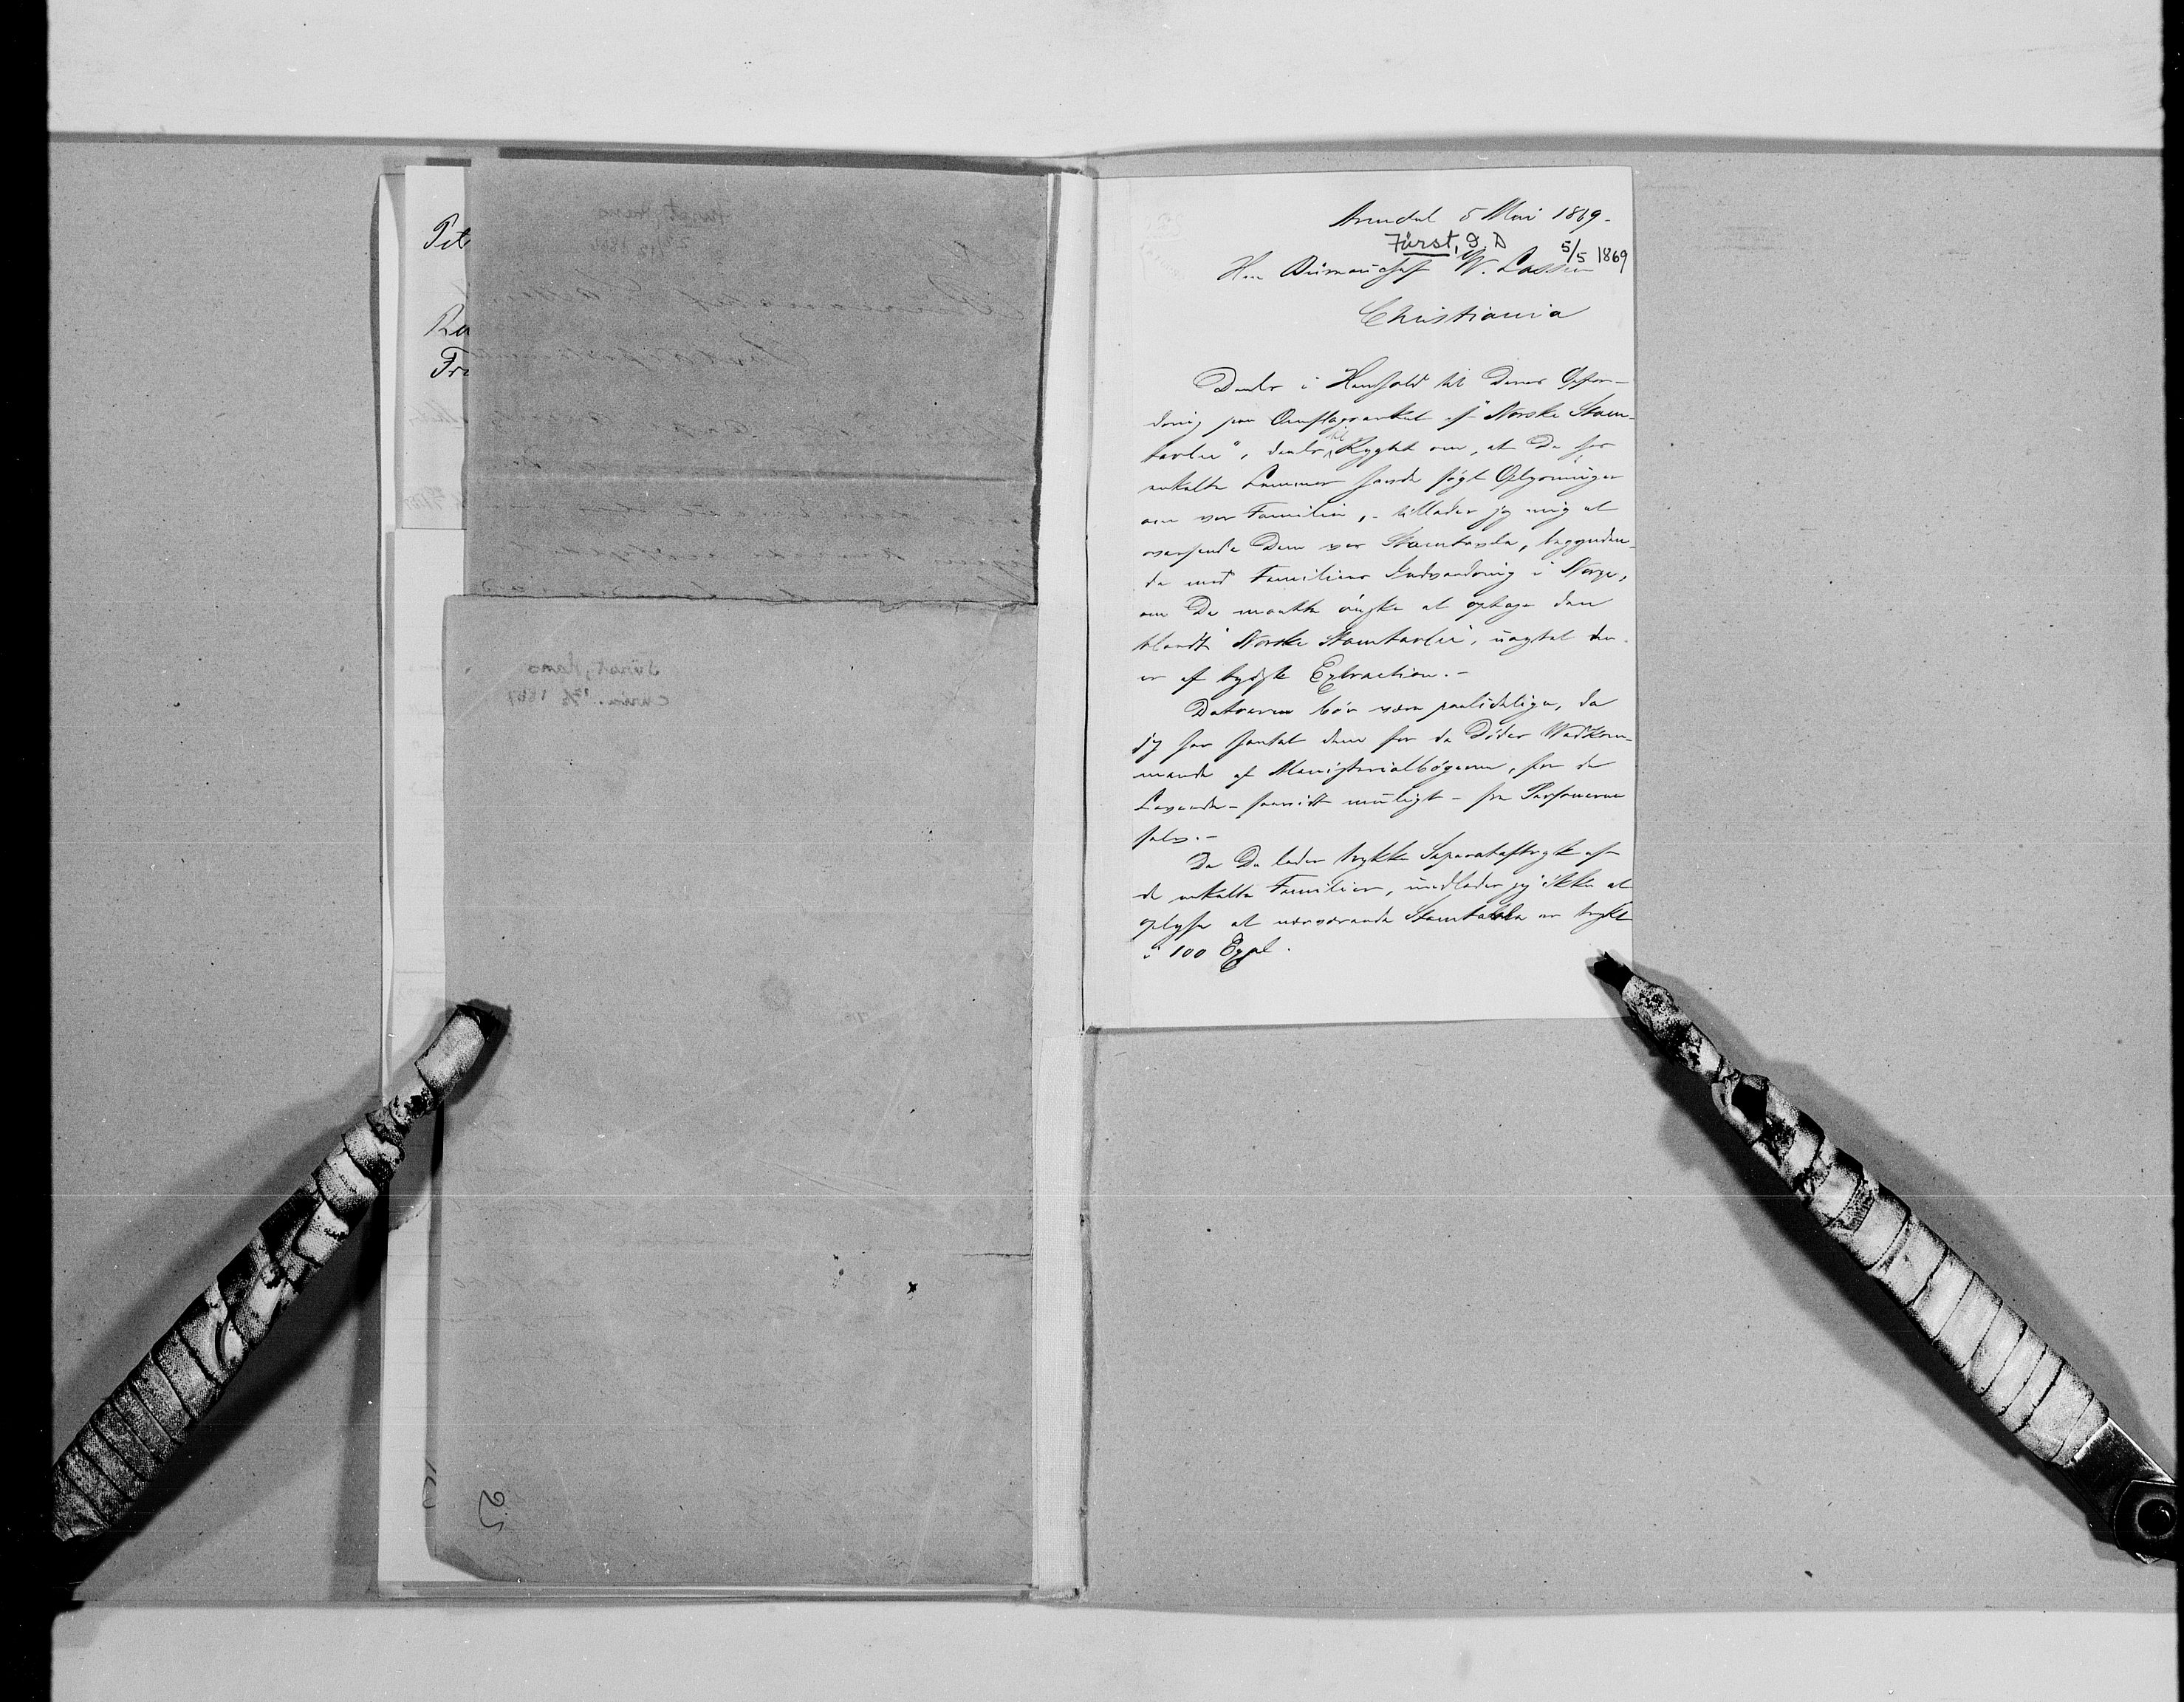 Pet
Ra
Fri
25
Arendal 5 Mai 1869.
Fürst, I. D 5/5 1869
Herr Büreauchef W. Lassen
Christiania
Deels i Henhold til Deres Opfor-
dring paa Omslagsarket af "Norske Stam-
tavler", deels til Rygtet om, at De hos
enkelte Lemmer havde søgt Oplysninger
om vor Familie, - tillader jeg mig at
oversende Dem vor Stamtavle, begynden-
de med Familiens Indvandring i Norge,
om De maatte önske at optage den
blandt "Norske Stamtavler", uagtet den
er af tydsk Extraction. -
Datoerne bör være paalidelige, da
jeg har hentet dem for de Dödes Vedkom-
mende af Ministerialbøgerne, for de
Levende - saavidt muligt - fra Personerne
selv. -
Da De lader trykke Separataftryk af
de enkelte Familier, undlader jeg ikke at
oplyse at nærværende Stamtavle er trykt
i 100 Expl.